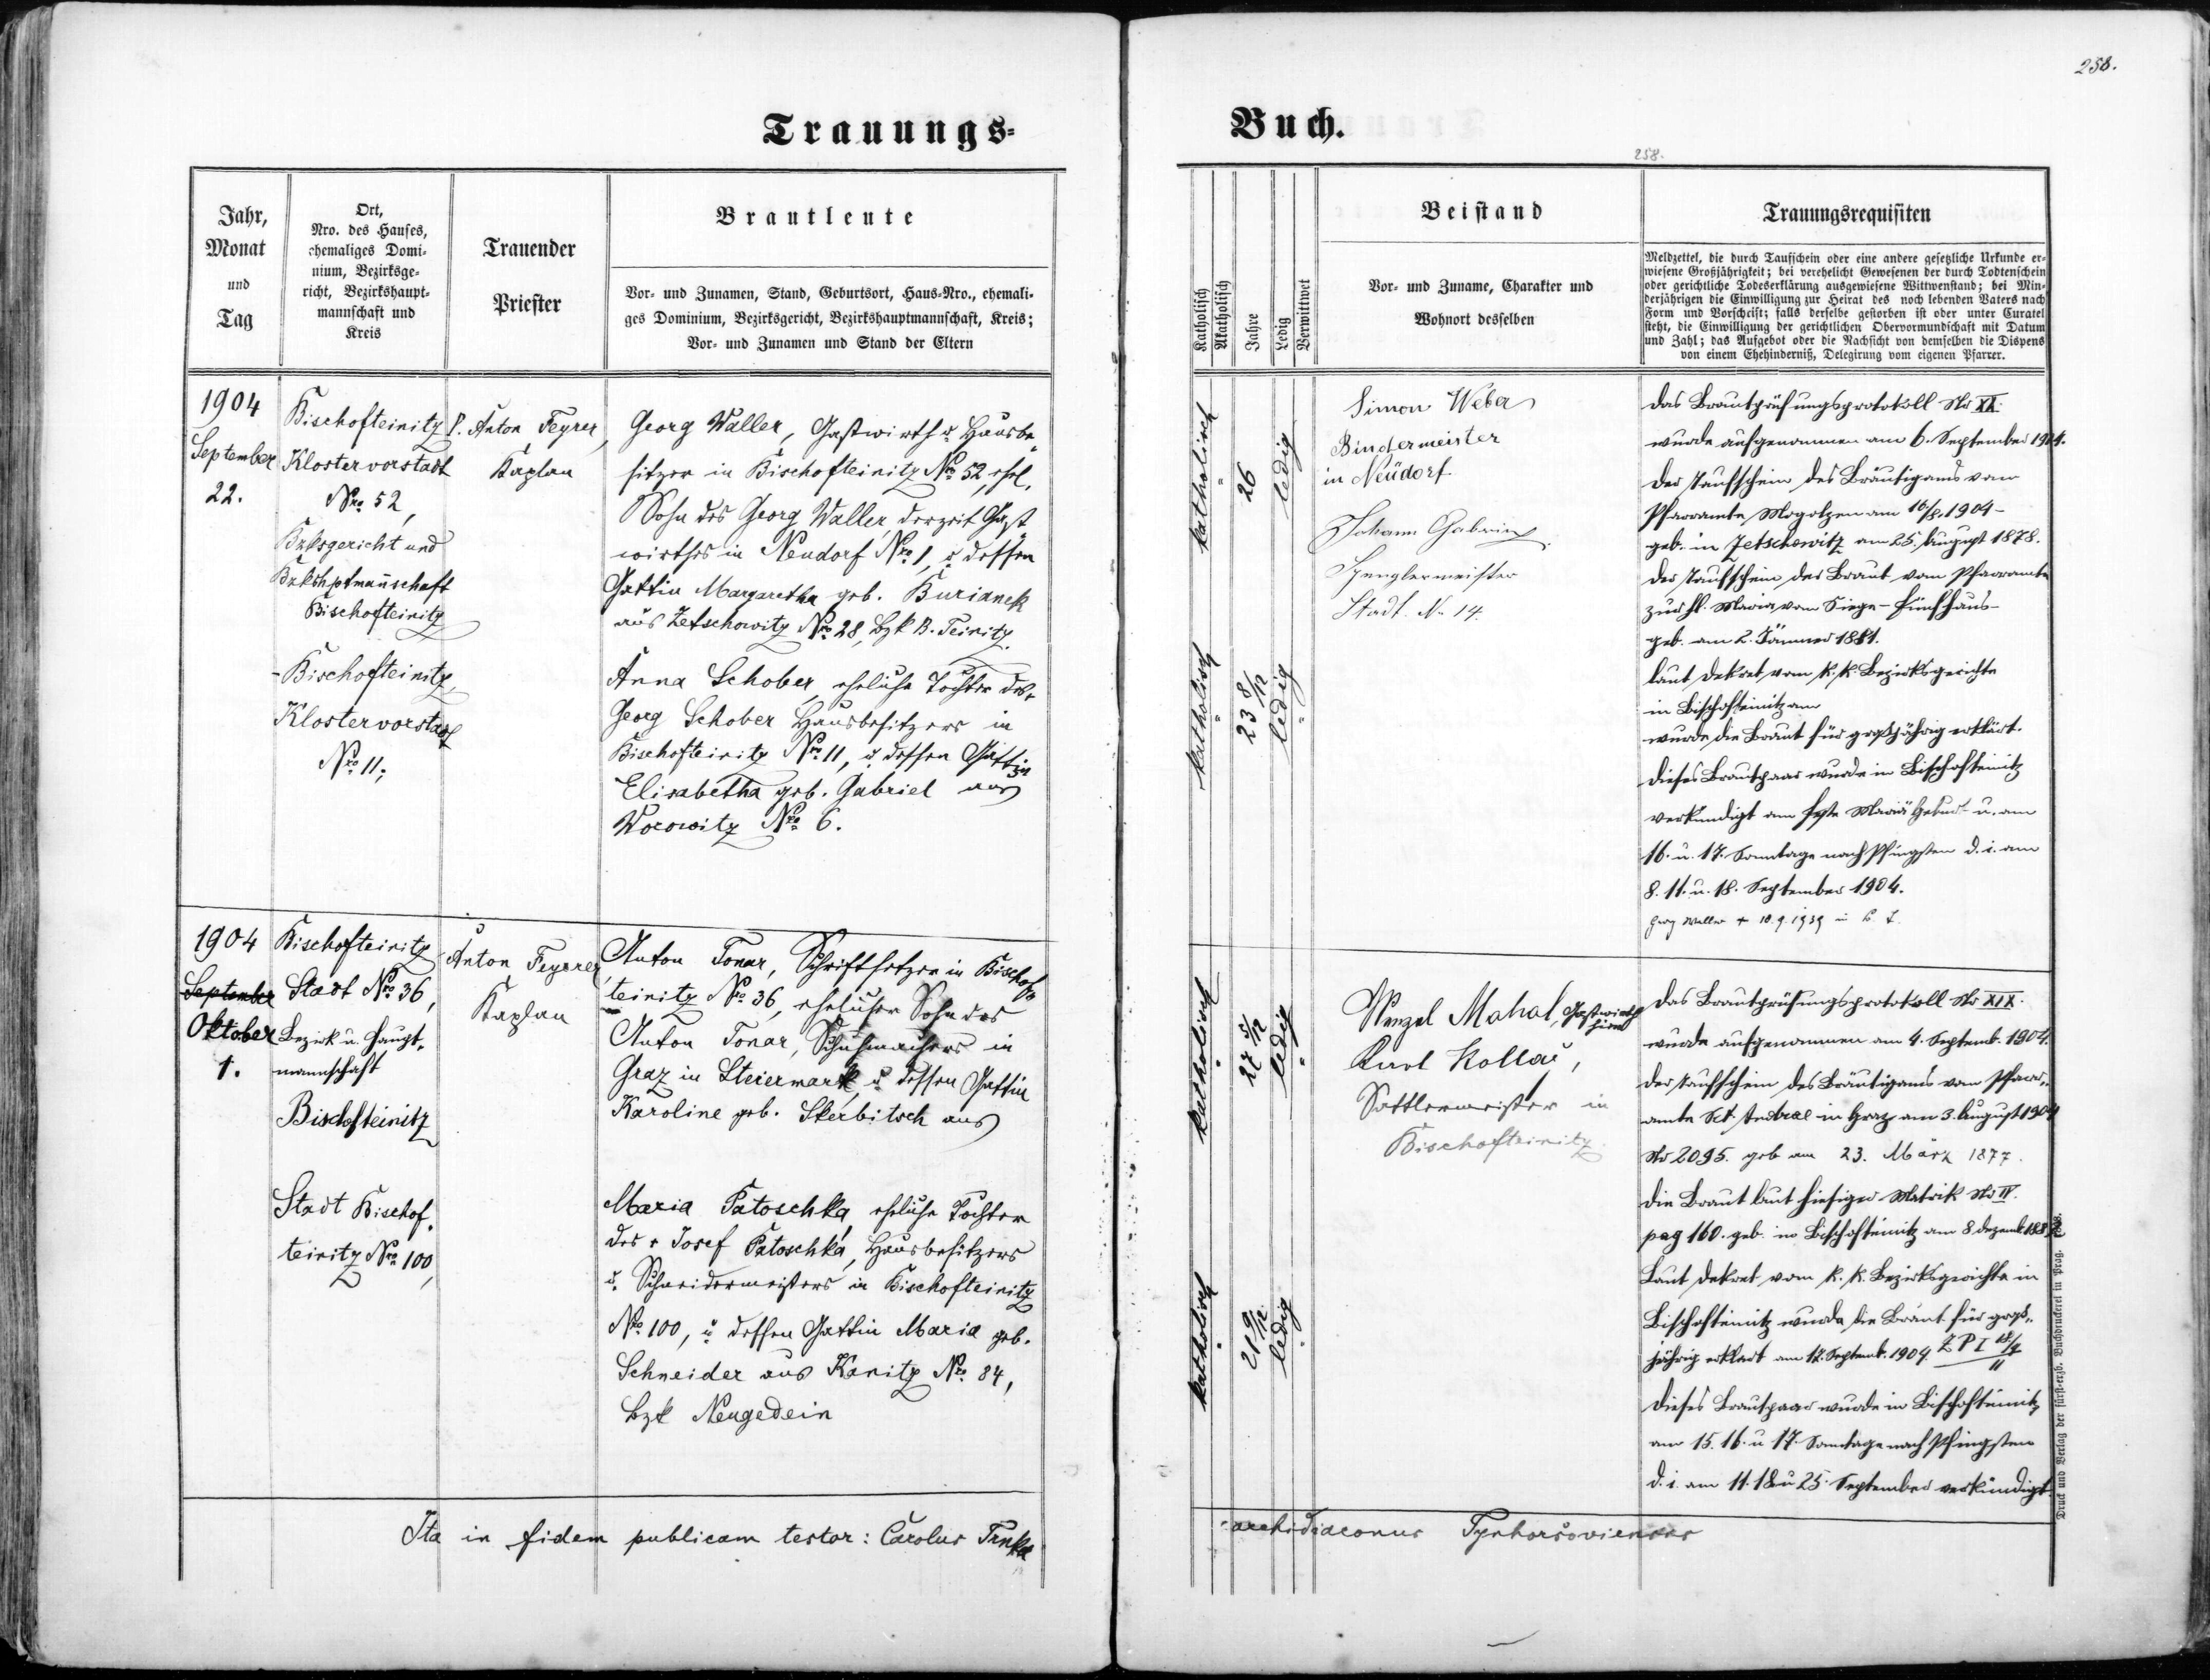 258.
Trauungs-
Buch.
258.
Jahr,
Monat
und
Tag
Ort,
Nro. des Hauses,
ehemaliges Domi-
nium, Bezirksge-
richt, Bezirkshaupt-
mannschaft und
Kreis
Trauender
Priester
Brautleute
Vor- und Zunamen, Stand, Geburtsort, Haus-Nro., ehemali-
ges Dominium, Bezirksgericht, Bezirkshauptmannschaft, Kreis;
Vor- und Zunamen und Stand der Eltern
Katholisch
Akatholisch
Jahre
Ledig
Verwittwet
Beistand
Vor- und Zuname, Charakter und
Wohnort desselben
Trauungsrequisiten
Meldzettel, die durch Taufschein oder eine andere gesetzliche Urkunde er-
wiesene Großjährigkeit; bei verehelicht Gewesenen der durch Todtenschein
oder gerichtliche Todeserklärung ausgewiesene Wittwenstand; bei Min-
derjährigen die Einwilligung zur Heirat des noch lebenden Vaters nach
Form und Vorschrift; falls derselbe gestorben ist oder unter Curatel
steht, die Einwilligung der gerichtlichen Obervormundschaft mit Datum
und Zahl; das Aufgebot oder die Nachsicht von demselben die Dispens
von einem Ehehinderniß, Delegirung vom eigenen Pfarrer.
1904
September
22.
Bischofteinitz
Klostervorstadt
Nro 52,
Bzksgericht und
Bzkshptmannschaft
Bischofteinitz
Bischofteinitz,
Klostervorstadt
Nro 11,
P. Anton Feyrer,
Kaplan
Georg Waller, Gastwirth u. Hausbe-
sitzer in Bischofteinitz Nro 52, ehel.
Sohn des Georg Waller, derzeit Gast-
wirthes in Neudorf Nro 1, u. dessen
Gattin Margaretha geb. Burianek
aus Zetschowitz Nro 28, Bzk B. Teinitz.
Anna Schober, eheliche Tochter des
Georg Schober Hausbesitzers in
Bischofteinitz Nro 11, u. dessen Gattin
Elisabetha geb. Gabriel aus
Worowitz Nro 6.
katholisch
26
ledig
katholisch
23 8/12
ledig
Simon Weber
Bindermeister
in Neudorf
Johann Gabriel
Spenglermeister
Stadt. No 14.
Das Brautprüfungsprotokoll No XX.
wurde aufgenommen am 6. September 1904.
Der Taufschein des Bräutigams vom
Pfarramte Mogolzen am 10/8. 1904 -
geb. in Zetschowitz am 25. August 1878.
Der Taufschein der Braut vom Pfarramte
zur hl. Maria vom Siege - Fünfhaus -
geb. am 2. Jänner 1881.
Laut Dekret vom k. k. Bezirksgerichte
in Bischofteinitz am
wurde die Braut für großjährig erklärt.
Dieses Brautpaar wurde in Bischofteinitz
verkündigt am Feste Mariä Geburt u. am
16. u. 17. Sonntage nach Pfingsten d. i. am
8. 11. u. 18. September 1904.
Georg Waller + 10.9.1939 in B. T.
1904
September
Oktober
1.
Bischofteinitz
Stadt Nro 36,
Bezirk u. Haupt-
mannschaft
Bischofteinitz
Stadt Bischof-
teinitz Nro 100,
Anton Feyrer,
Kaplan
Anton Tonar, Schriftsetzer in Bischof-
teinitz Nro 36, ehelicher Sohn des
Anton Tonar, Schuhmachers in
Graz in Steiermark, u. dessen Gattin
Karoline geb. Skerbitsch aus
Maria Patoschka, eheliche Tochter
des + Josef Patoschka, Hausbesitzers
u. Schneidermeisters in Bischofteinitz
Nro 100, u. dessen Gattin Maria geb.
Schneider aus Kanitz Nro 84,
Bzk Neugedein
katholisch
27 5/12
ledig
katholisch
21 9/12
ledig
Wenzel Mahal, Gastwirth
hier
Karl Kollar,
Sattlermeister in
Bischofteinitz
Das Brautprüfungsprotokoll No XIX.
wurde aufgenommen am 4. Septemb. 1904.
Der Taufschein des Bräutigams vom Pfarr-
amte Sct. Andrae in Graz am 3. August 1904
No 2095. geb am 23. März 1877.
Die Braut laut hiesiger Matrik No IV.
pag 160. geb. in Bischofteinitz am 8. Dezemb. 1882
Laut Dekret vom k. k. Bezirksgerichte in
Bischofteinitz wurde die Braut für groß-
jährig erklärt am 12. Septemb. 1904. Z P I 18/4
11
Dieses Brautpaar wurde in Bischofteinitz
am 15. 16. u. 17. Sonntage nach Pfingsten
d. i. am 11. 18. u 25. September verkündigt.
Ita in fidem publicam testor: Carolus Trnka
archidiaconus Tynhoršoviensis
Druck und Verlag der fürst-erzb. Buchdruckerei in Prag.